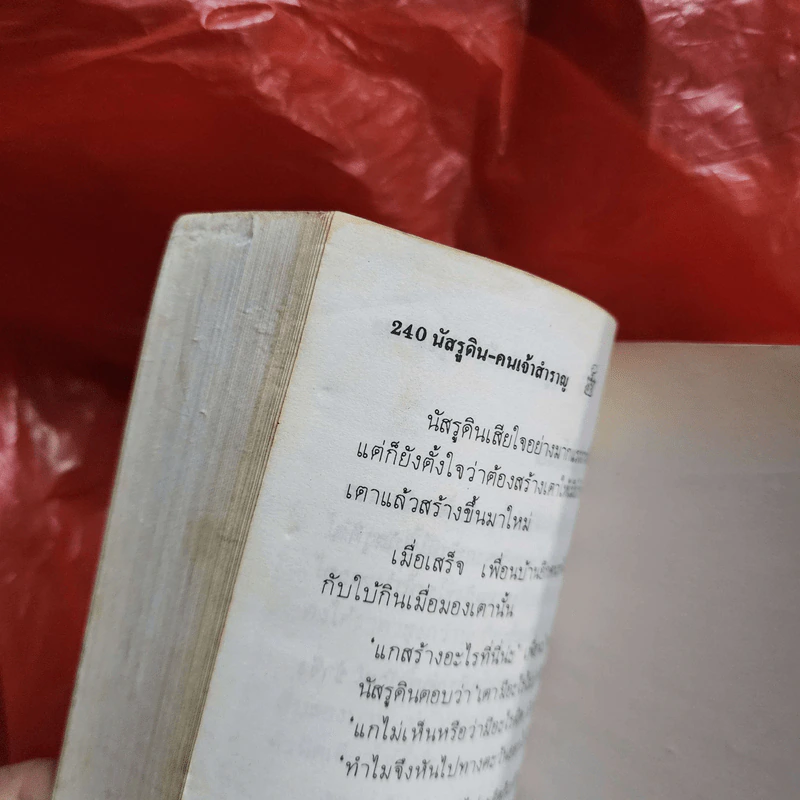 240 นัสรูดิน-คนเจ้าสำราญ
นัสรูดินเสียใจอย่างมาก
แต่ก็ยังตั้งใจว่าต้องสร้างเตา
เตาแล้วสร้างขึ้นมาใหม่
เมื่อเสร็จ เพื่อนบ้าน
กับใบ้กินเมื่อมองเตานั้น
"แกสร้างอะไรที่นี่น่ะ"
นัสรูดินตอบว่า "เตา
"แกไม่เห็นหรือว่ามีอะไร
"ทำไมจึงหันไปทาง